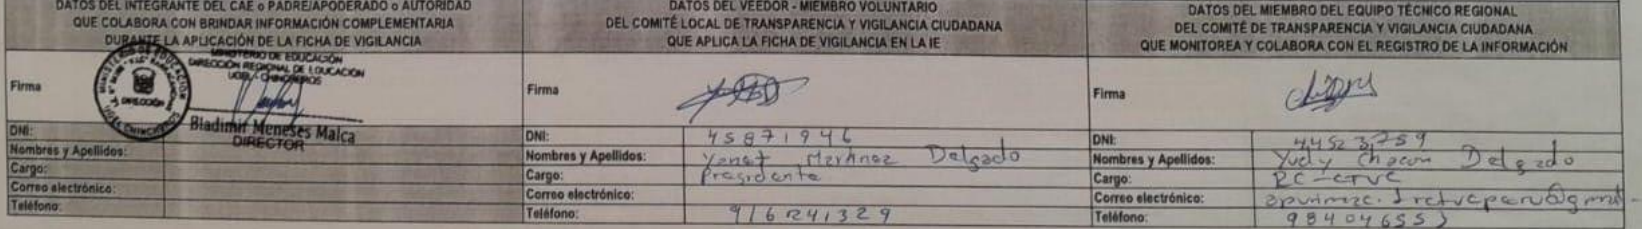 DATOS DEL INTEGRANTE DEL CAE o PADRE/APODERADO o AUTORIDAD
QUE COLABORA CON BRINDAR INFORMACIÓN COMPLEMENTARIA
DURANTE LA APLICACIÓN DE LA FICHA DE VIGILANCIA
Firma
MINISTERIO DE EDUCACIÓN
DIRECCIÓN REGIONAL DE EDUCACIÓN
UGEL - CHINCHEROS
DIRECCIÓN
UGEL CHINCHEROS
Bladimir Meneses Malca
DIRECTOR
DNI:
Nombres y Apellidos:
Cargo:
Correo electrónico:
Teléfono:
DATOS DEL VEEDOR - MIEMBRO VOLUNTARIO
DEL COMITÉ LOCAL DE TRANSPARENCIA Y VIGILANCIA CIUDADANA
QUE APLICA LA FICHA DE VIGILANCIA EN LA IE
Firma
DNI: 45871946
Nombres y Apellidos: Yanet Martinez Delgado
Cargo: Presidenta
Correo electrónico:
Teléfono: 916241329
DATOS DEL MIEMBRO DEL EQUIPO TÉCNICO REGIONAL
DEL COMITÉ DE TRANSPARENCIA Y VIGILANCIA CIUDADANA
QUE MONITOREA Y COLABORA CON EL REGISTRO DE LA INFORMACIÓN
Firma
DNI: 44523759
Nombres y Apellidos: Yudy Chacon Delgado
Cargo: RC-CTVC
Correo electrónico:
Teléfono: 984046553